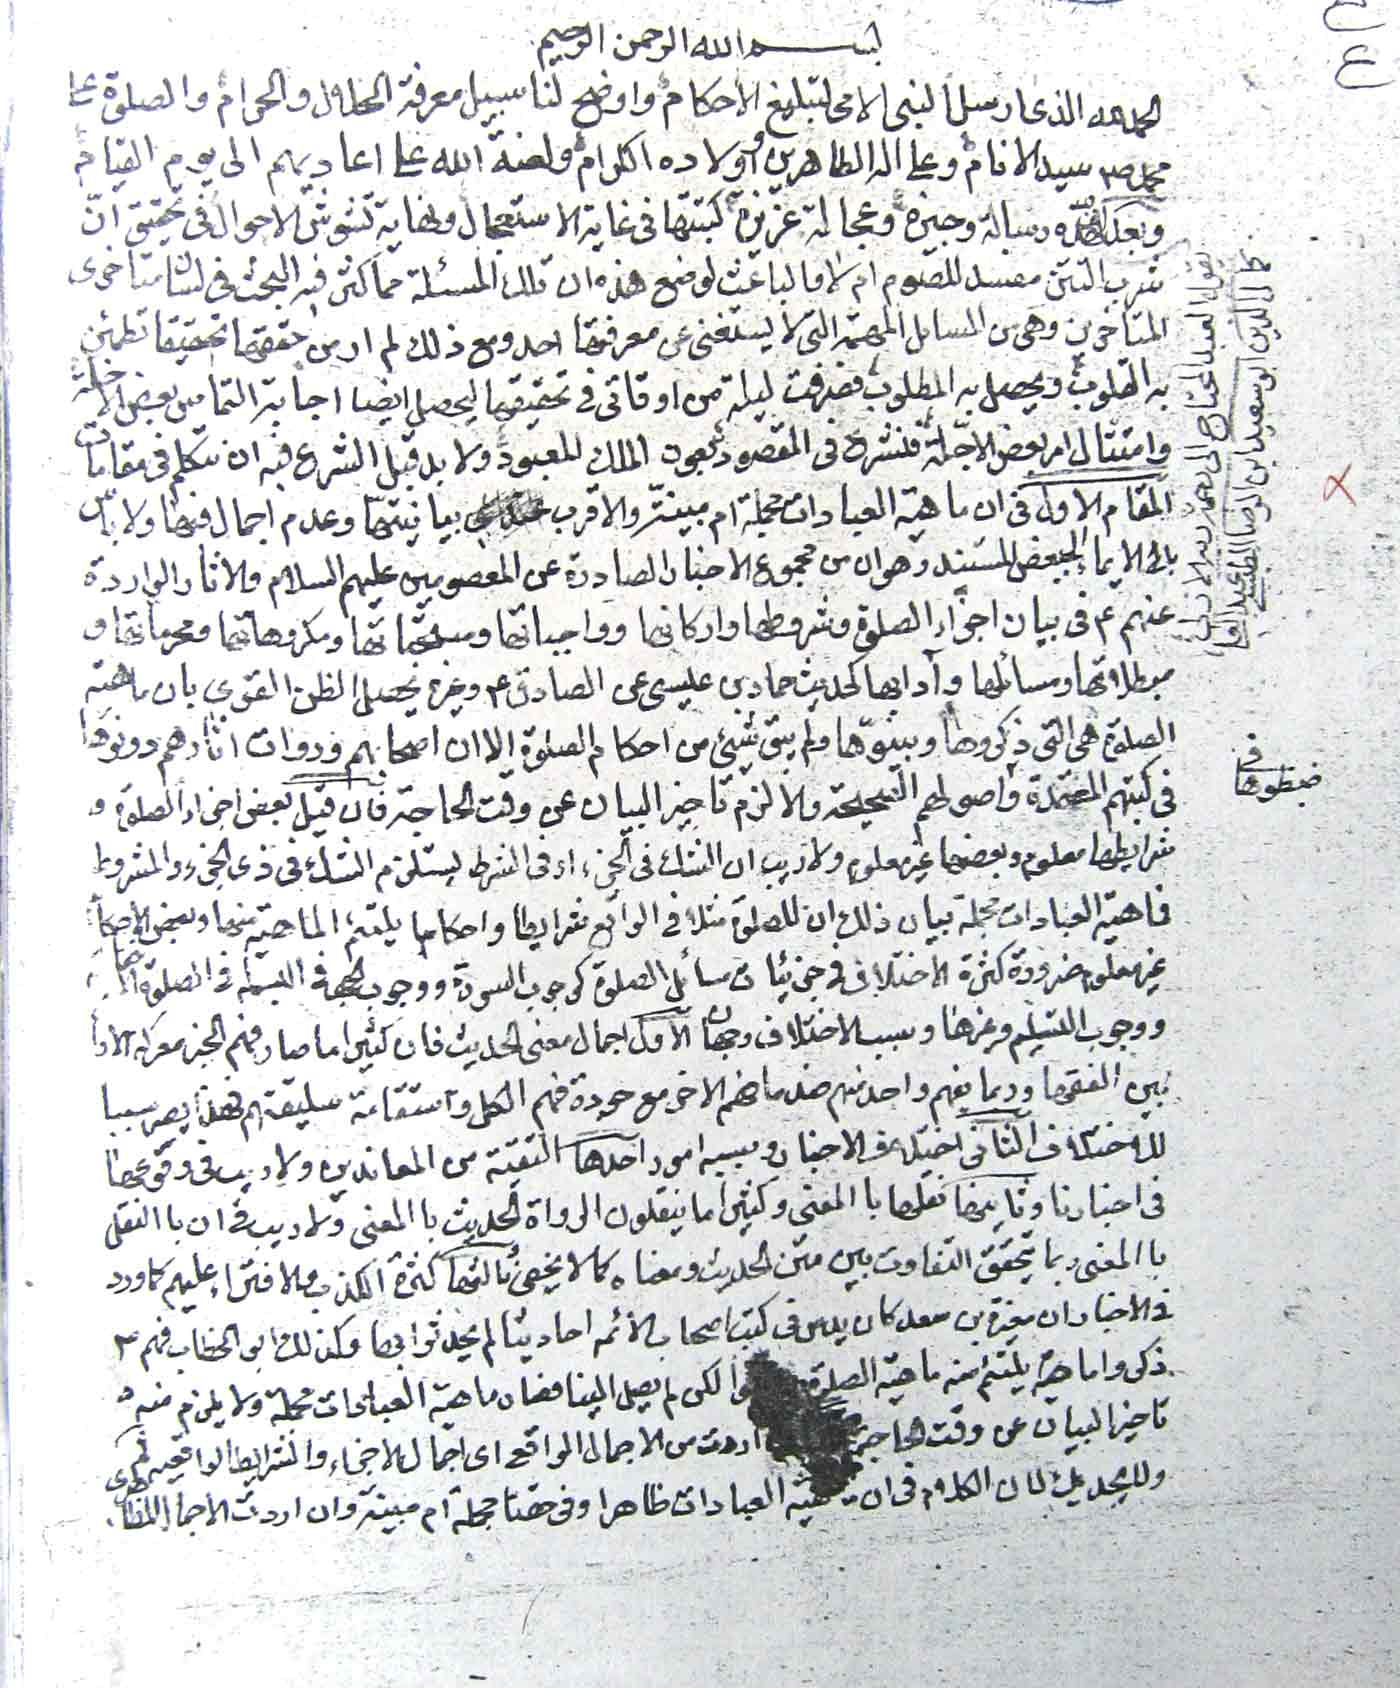 بسم الله الرحمن الرحيم
الحمد لله الذى ارسل النبى الامى لتبليغ الاحكام واوضح لنا سبيل معرفة الحلال والحرام والصلوة على
محمد ص سيد الانام وعلى اله الطاهرين واولاده الكرام ولعنة الله على اعاديهم الى يوم القيام
وبعد فهذه رسالة وجيزة وعجالة عزيزة كتبتها فى غاية الاستعجال ونهاية تشوش الاحوال فى تحقيق ان
شرب التتن مفسد للصوم ام لا والباعث لوضع هذه ان تلك المسئلة مما كثر فيه البحث فى لسان متاخرى
المتاخرين وهى من المسايل المهمة التى لا يستغنى عن معرفتها احد ومع ذلك لم ار من حققها تحقيقا تطمئن
به القلوب ويحصل به المطلوب فصرفت ليلة من اوقاتى فى تحقيقها ليحصل ايضا اجابة التماس بعض الاخلة
وامتثال امر بعض الاجلة فلنشرع فى المقصود بعون الملك المعبود ولا بد قبل الشرع فيه ان نتكلم فى مقامات
المقام الاول فى ان ماهية العبادات مجملة ام مبينة والاقرب بيانيتها وعدم اجمال فيها ولا باس
بالايماء لبعض المستند وهو ان من مجموع الاخبار الصادرة عن المعصومين عليهم السلام والاثار الواردة
عنهم ع فى بيان اجزاء الصلوة وشروطها واركانها وواجباتها ومستحباتها ومكروهاتها ومحرماتها و
مبطلاتها ومسائلها وآدابها كحديث حماد بن عيسى عن الصادق ع وغيره يحصل الظن القوى بان ماهية
الصلوة هى التى ذكروها وبينوها ولم يبق شيئ من احكام الصلوة الا ان اصحابهم وروات اثارهم دونوها
فى كتبهم المعتمدة واصولهم الصحيحة والا لزم تاخير البيان عن وقت الحاجة فان قيل بعض اجزاء الصلوة و
شرايطها معلوم وبعضها غير معلوم ولا ريب ان الشك فى الجزء او فى الشرط يستلزم الشك فى ذى الجزء والمشروط
فماهية العبادات مجملة بيان ذلك ان للصلوة مثلا فى الواقع شرايطا واحكاما يلتئم الماهية منها وبعض الاحكام
غير معلوم ضرورة كثرة الاختلاف فى جزئيات مسائل الصلوة كوجوب السورة ووجوب الجهر فى البسملة فى الصلوة
ووجوب التسليم وغيرها وسبب الاختلاف وجهان الاول اجمال معنى الحديث فان كثيرا ما صار فهم الخبر معركة الاراء
بين الفقها وربما يفهم واحد منهم ضد ما فهم الاخر مع جودة فهم الكل واستقامة سليقتهم فهذا يصير سببا
للاختلاف الثانى اختلاف الاخبار وسببه امور احدها التقية من المعاندين ولا ريب فى وقوعها
فى اخبارنا وثانيها نقلها با المعنى وكثيرا ما ينقلون الرواة الحديث با المعنى ولا ريب فى ان با النقل
با المعنى ربما يتحقق التفاوت بين متن الحديث ومعناه كما لا يخفى ثالثها كثرة الكذب والافتراء عليهم كما ورد
فى الاخبار ان مغيرة بن سعد كان يدس فى كتب اصحاب الائمه احاديثا لم يحدثوا بها وكذلك ابو الخطاب فهم ع
ذكروا ما يلتئم منه ماهية الصلوة لكن لم يصل الينا فصار ماهية العبادات مجملة ولا يلزم منه
تاخير البيان عن وقت الحاجة اردت من الاجمال الواقع اى اجمال الاجزاء والشرايط الواقعية
ولا يجديك لان الكلام فى ان ماهية العبادات ظاهرا وفى حقنا مجملة ام مبينة وان اردت الاجمال
يقول العبد المحتاج الى رحمة ربه
كمال الدين ابو سعيد ابن الرضا الطبسى
ضبطوها فى